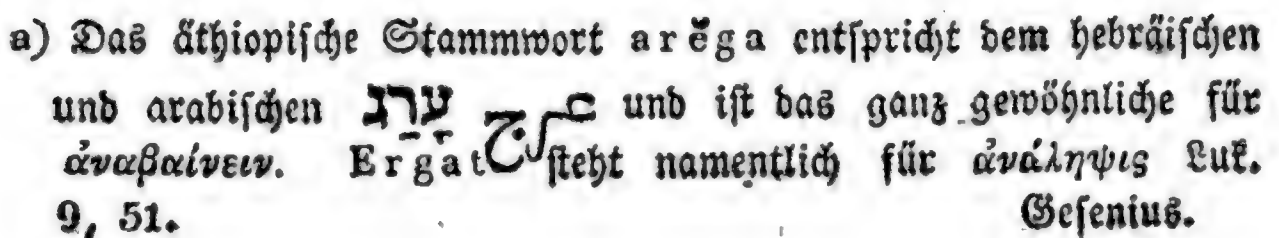 a) Das äthiopische Stammwort arĕga entspricht dem hebräischen
und arabischen עָרַג عرج und ist das ganz gewöhnliche für
ἀναβαίνειν. Ergat steht namentlich für ἀνάληψις Luk.
9, 51. Gesenius.